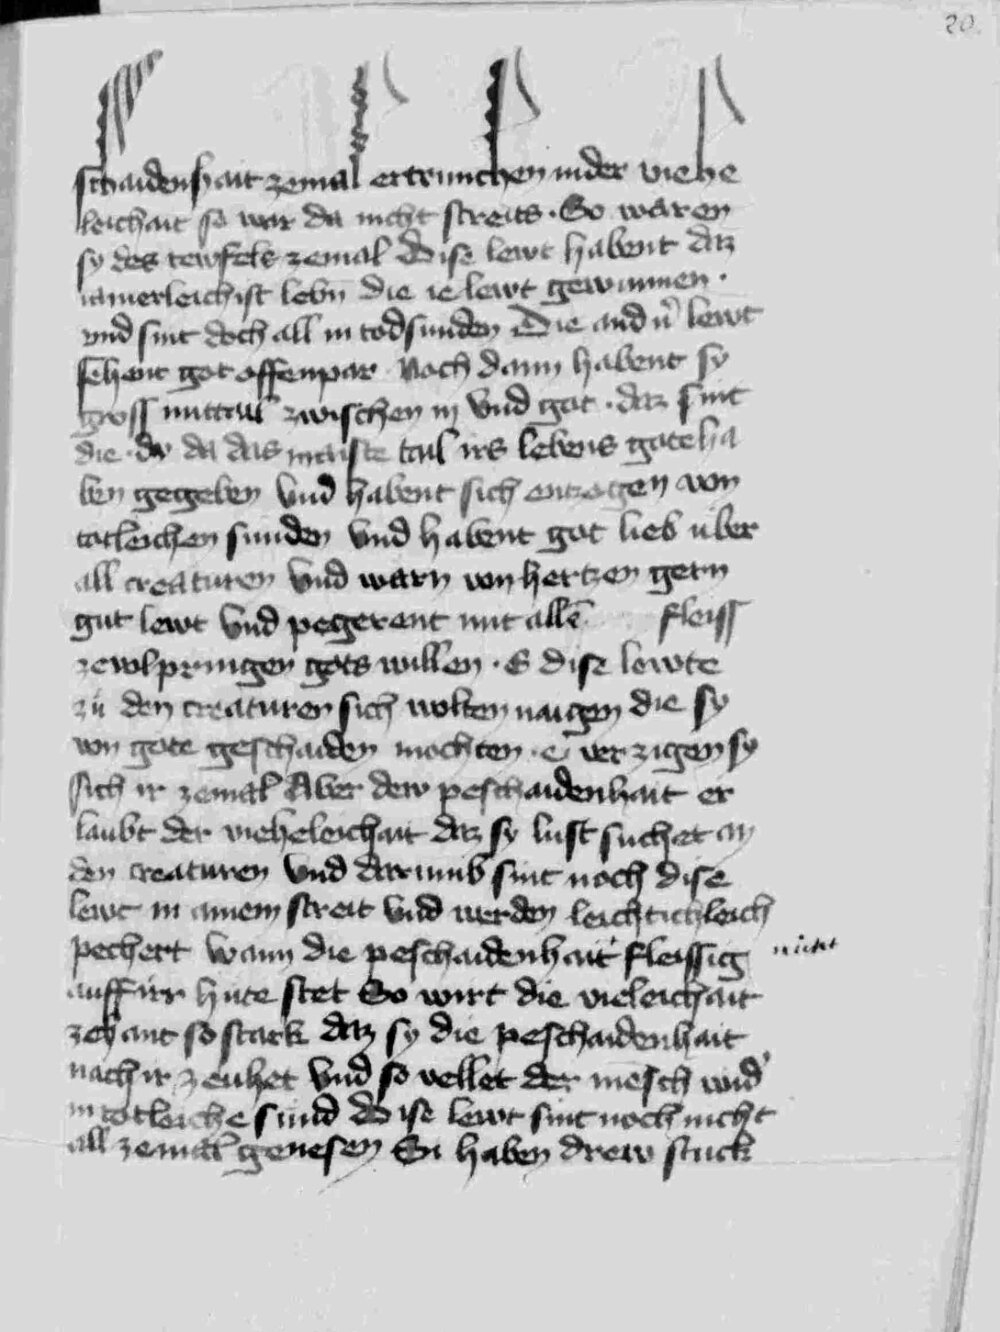 20.
schaidenhait zemal ertrunchen in der viehe
leichait so war da nicht streits · So waren
sy des tewfels zemal Dise lewt habent daz
iamerleichist lebn̄ die ie lewt gewunnen ·
vnd sint doch all in todsunden Die and n̉ lewt
sehent got offenpar Noch dann habent sy
gross mittail zwischen in vnd got · daz sint
die · da das maiste tail irs lebens gote ha
ben gegeben vnd habent sich entzogen von
totleichen sunden vnd habent got lieb uber
all creaturen vnd warn von hertzen gern
gut lewt vnd pegerent mit allē fleiss
zewlpringen gots willen · E dise lewte
zu den creaturen sich wolten naigen die sy
von gote geschaiden mochten · e verzigen sy
sich ir zemal Aber dew peschaidenhait er
laubt der vieheleichait daz sy lust suchet an
den creaturen vnd darumb sint noch dise
lewt in ainem streit vnd werden leichtichleich
pechert wann die peschaidenhait fleissig nicht
auff irr hute stet So wirt die vieleichait
zehant so stark daz sy die peschaidenhait
nach ir zeuhet vnd so vellet der mēsch wid̉
in totleiche sund Dise lewt sint noch nicht
all zemal genesen Si haben drew stuck